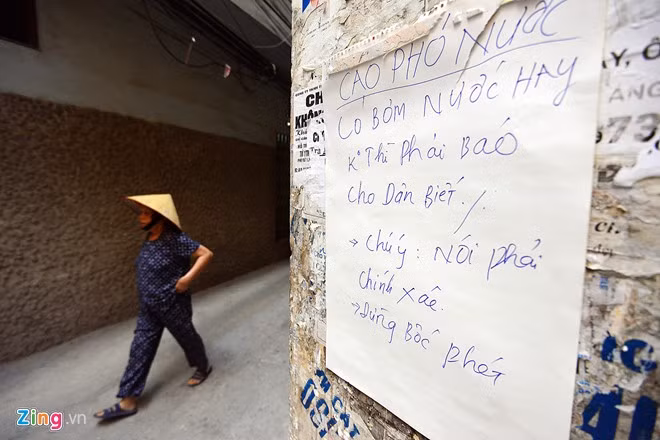 CÁO PHÓ NƯỚC
CÓ BƠM NƯỚC HAY
K° Thì Phải BAÓ
Cho Dân Biết./.
→ Chú ý: NÓI Phải
Chính Xác.
→ Đừng Bốc Phét
Zing.vn